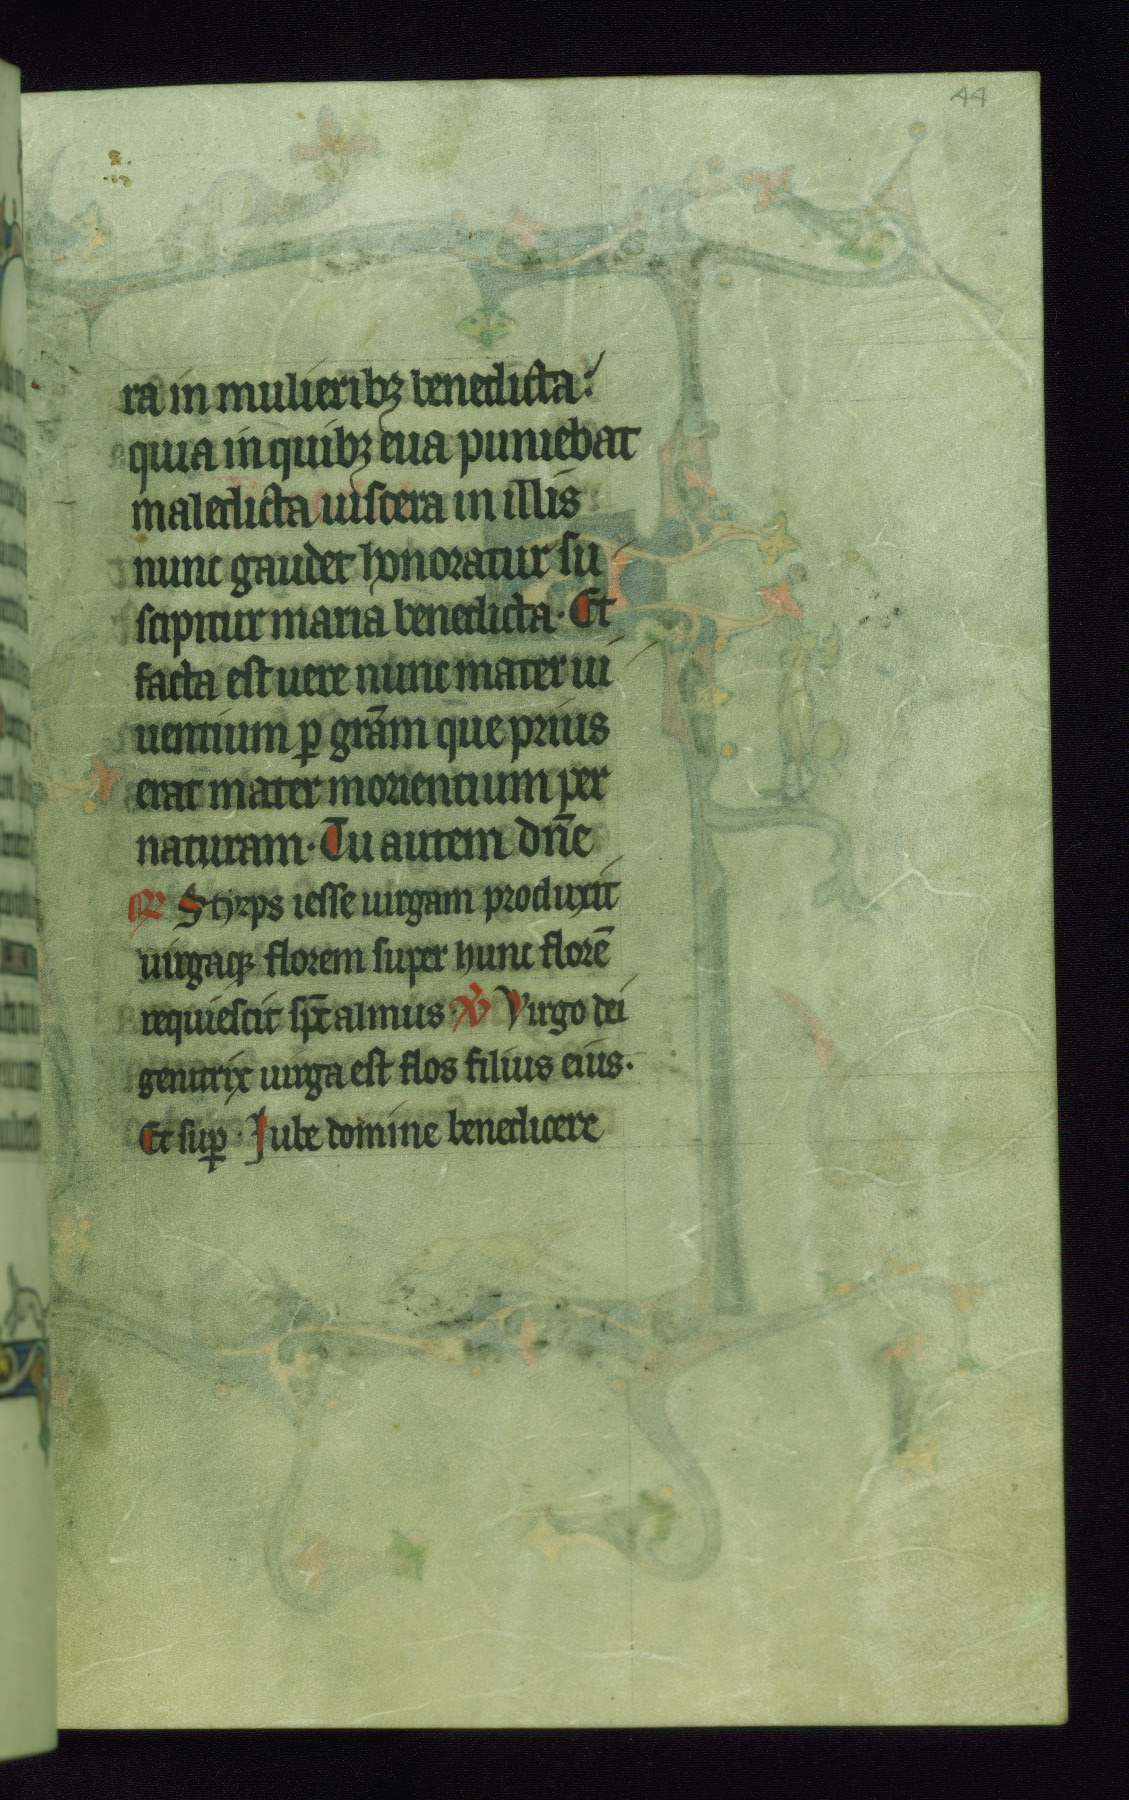 44
ra in mulieribꝫ benedicta:
quia in quibꝫ eua puniebat
maledicta uiscera in illis
nunc gaudet honoratur su
scipitur maria benedicta. Et
facta est uere nunc mater ui
uentium ꝑ grām que prius
erat mater morientium per
naturam. Tu autem dn̄e
℟ Styrps iesse uirgam produxit
uirgaqꝫ florem super hunc florē
requiescit sp̄c almus. ℣ Virgo dei
genitrix uirga est flos filius eius.
Et suꝑ. Iube domine benedicere